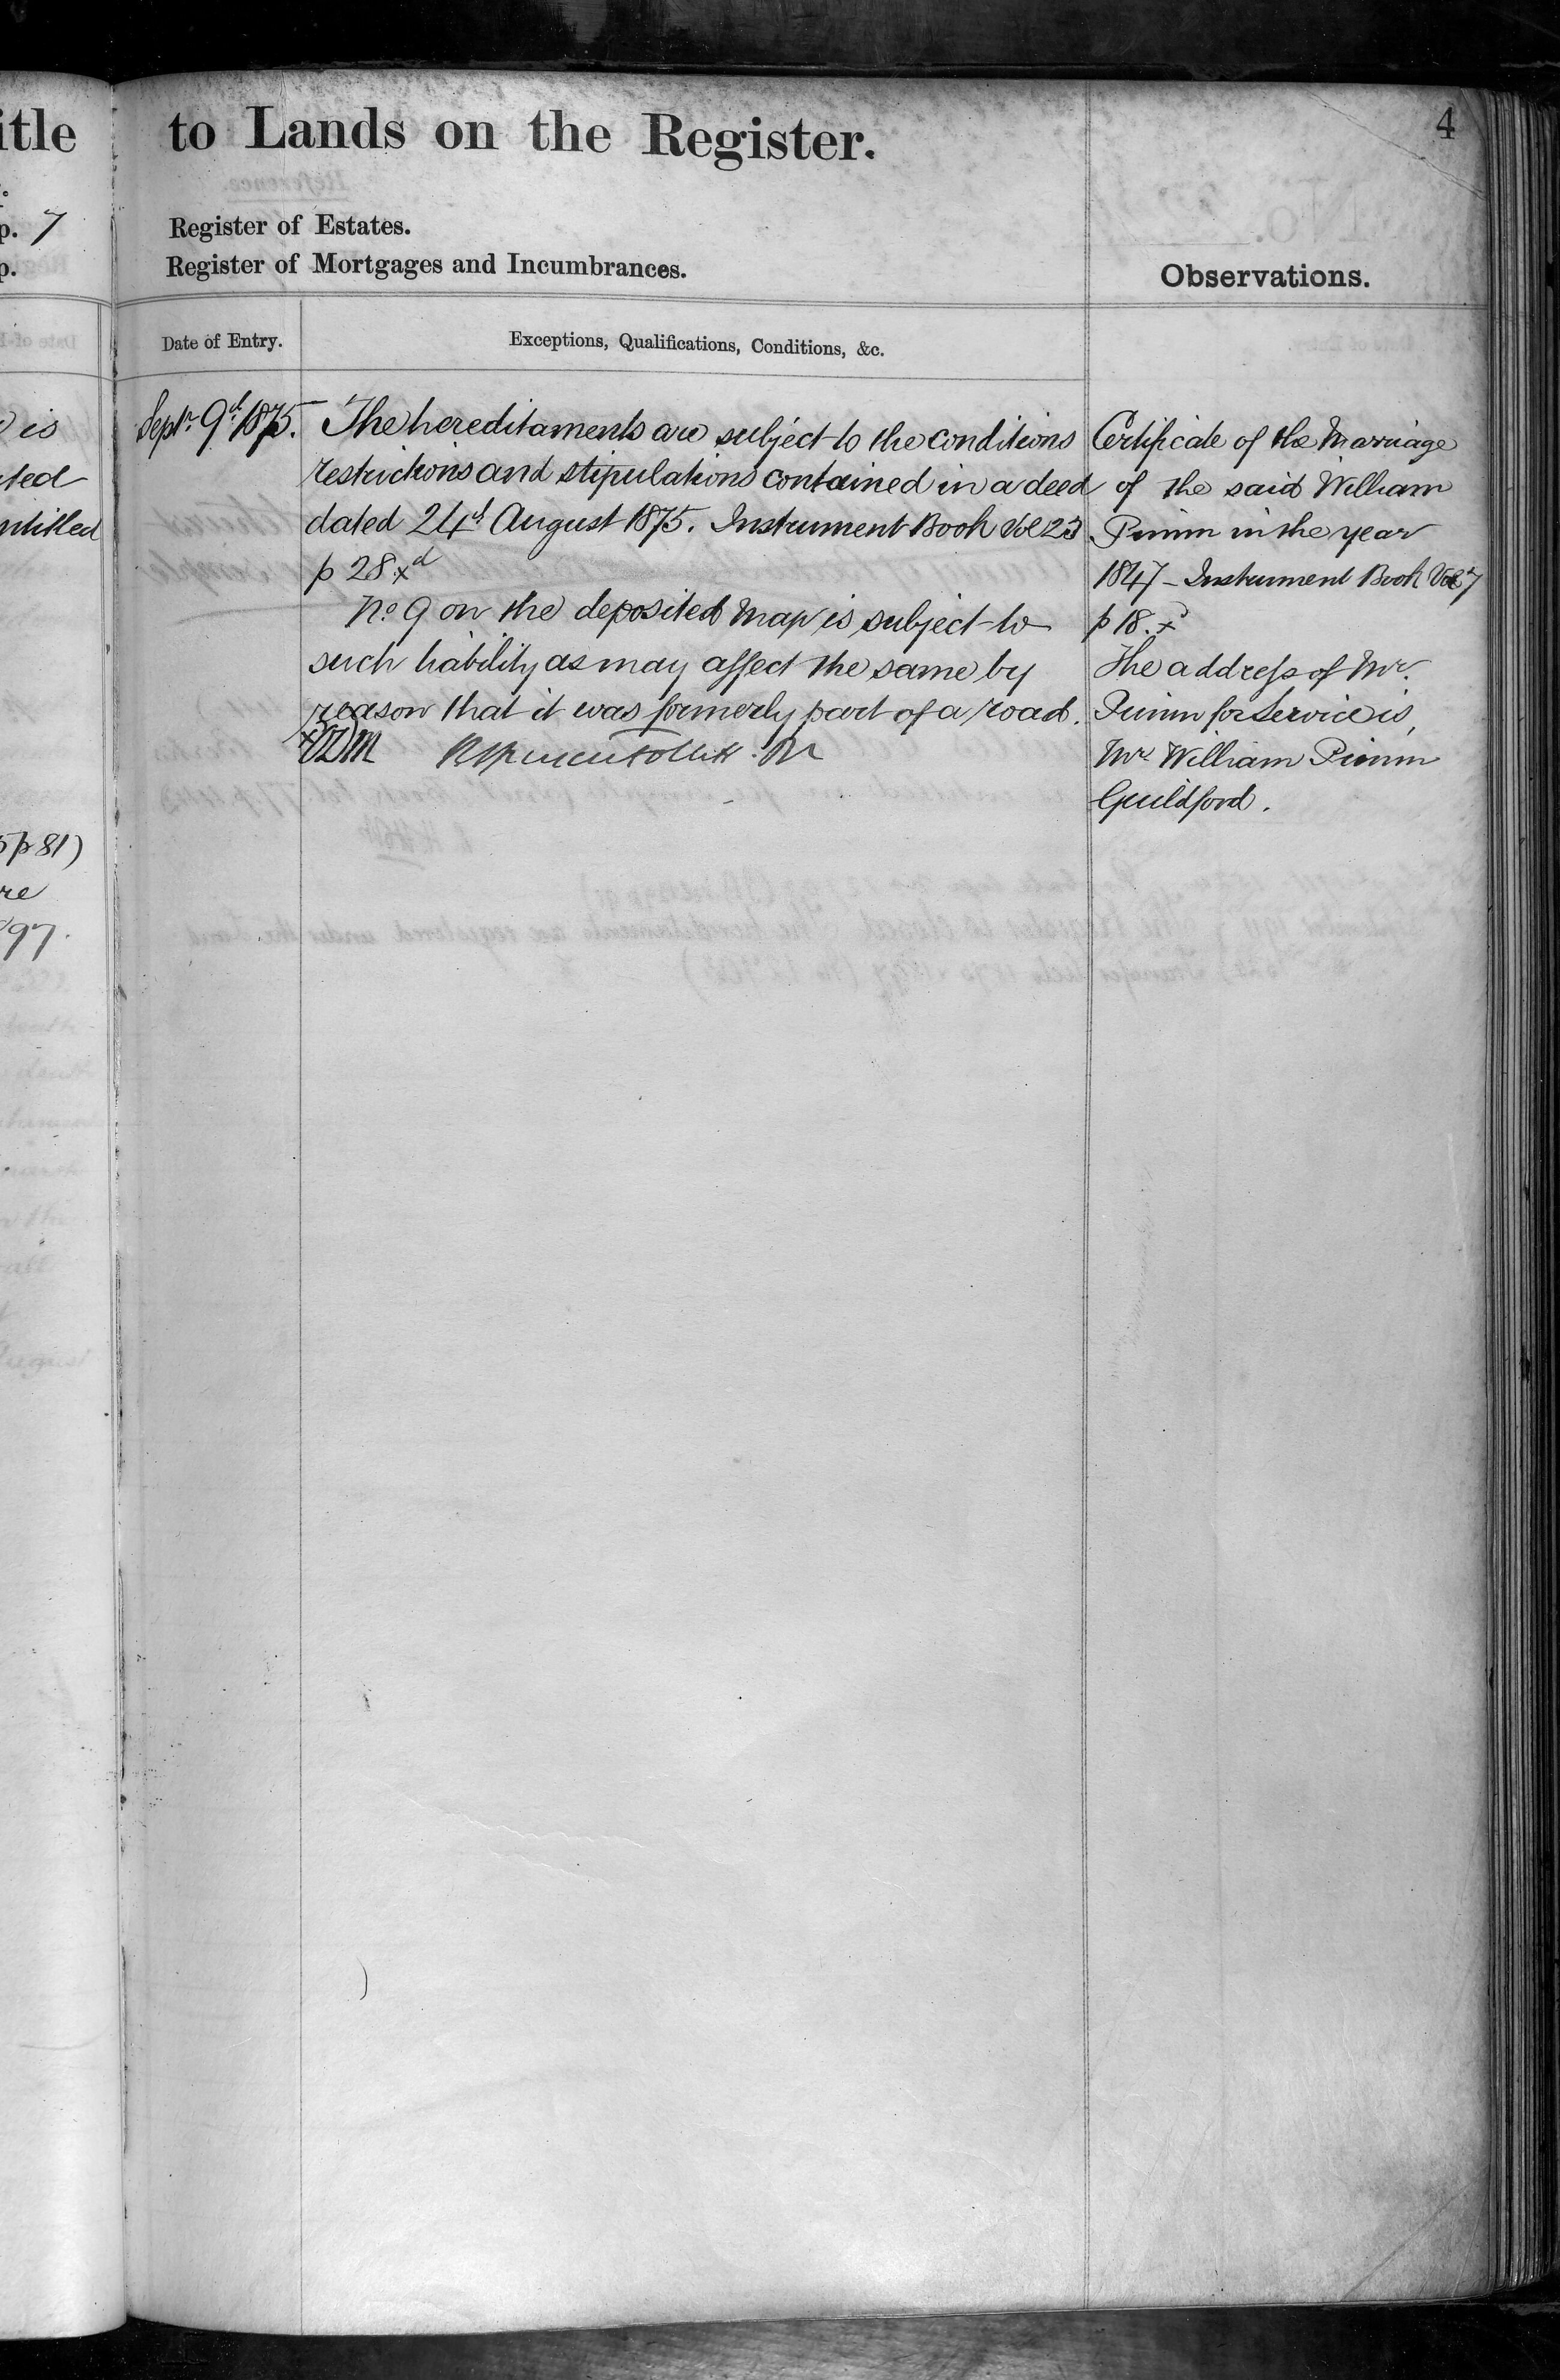 itle
p. 7
p.
is
ted
ntitled
5 p 81)
re
97.
to Lands on the Register.
4
Register of Estates.
Register of Mortgages and Incumbrances.
Observations.
Date of Entry.
Exceptions, Qualifications, Conditions, &c.
Septr. 9th 1875.
The hereditaments are subject to the conditions
restrictions and stipulations contained in a deed
dated 24th August 1875. Instrument Book Vol 23
p 28 x
No. 9 on the deposited Map is subject to
such liability as may affect the same by
reason that it was formerly part of a road.
Certificate of the Marriage
of the said William
Pimm in the year
1847 - Instrument Book Vol 7
p 18. x
The address of Mr.
Pimm for Service is,
Mr. William Pimm
Guildford.